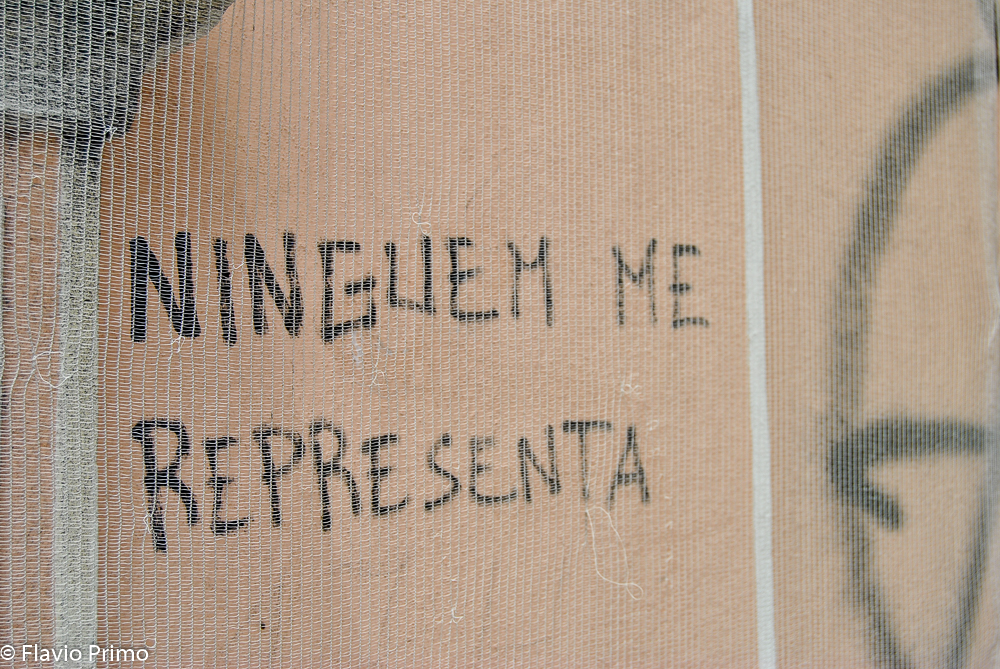 NINGUEM ME
REPRESENTA
© Flavio Primo